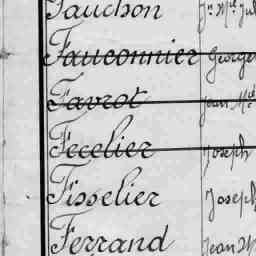 Fauchon Jn Mel Jul
Fauconnier George
Favrot Jean Mel
Fecelier Joseph
Fisselier Joseph
Ferrand Jean M